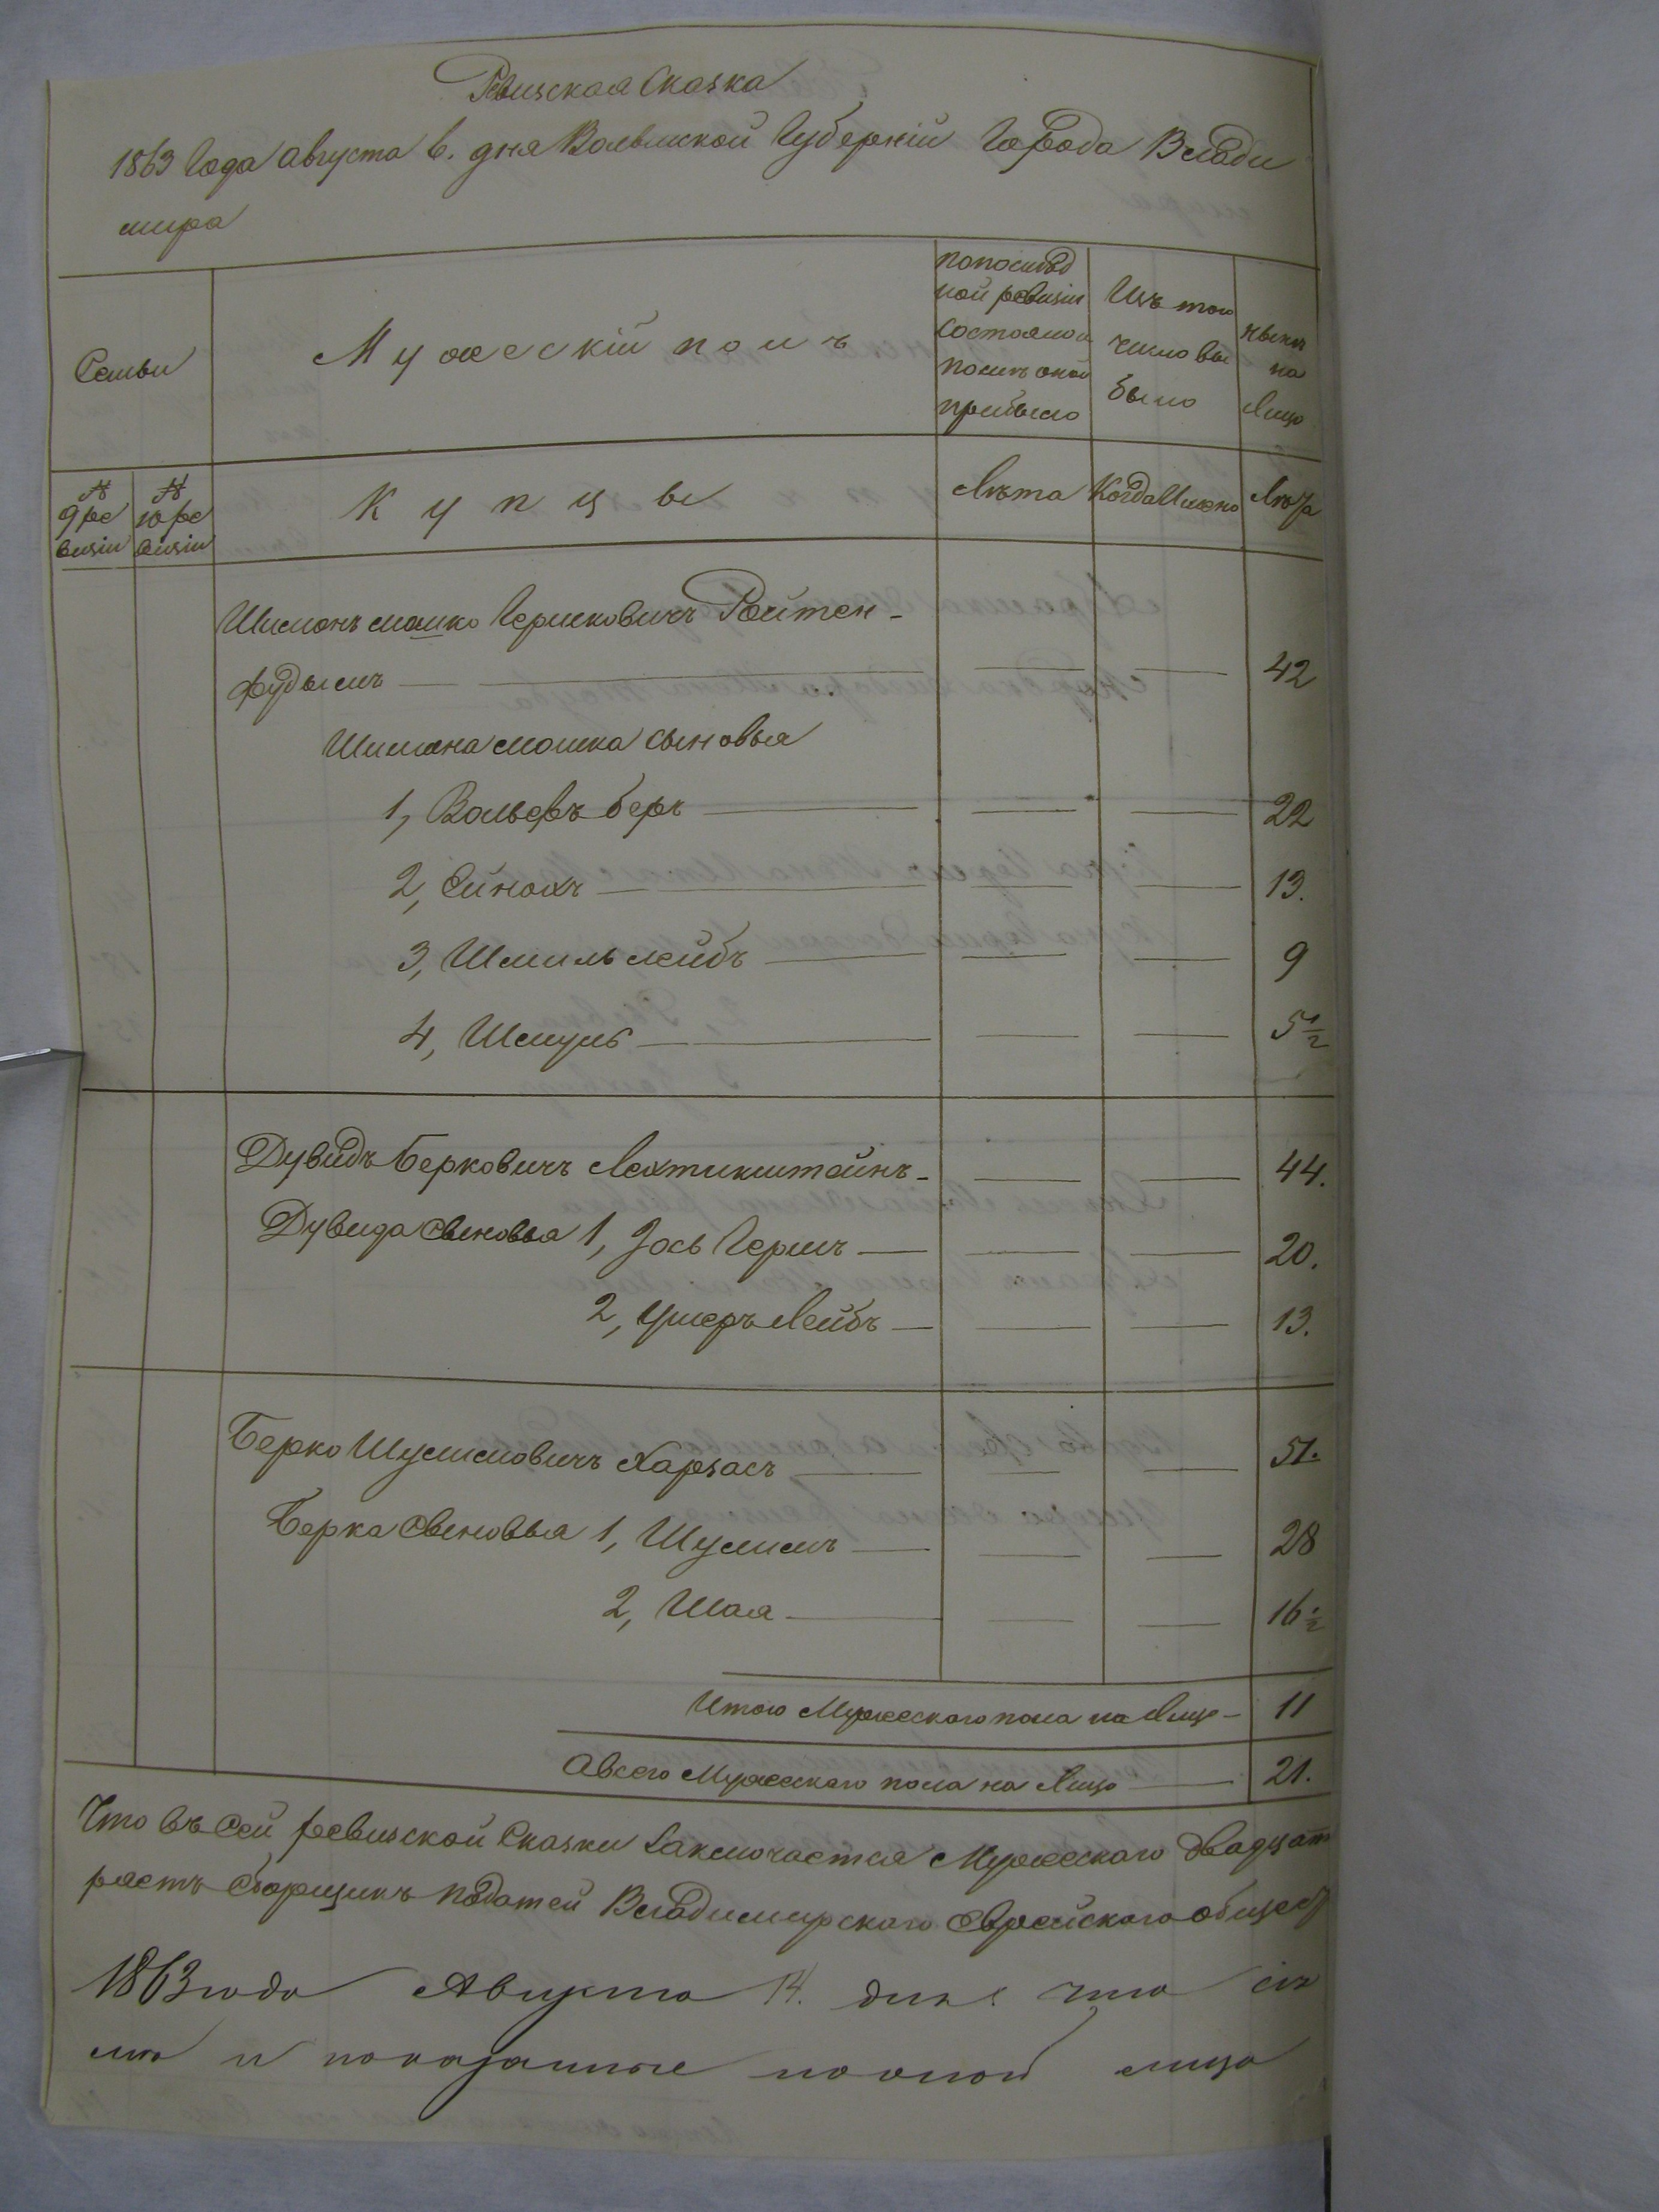 Ревизская Сказка
1863 Года Августа 6. дня Волынской Губернiи Города Влади
мира
Семьи
Мужескiй полъ
попослѣд
ной ревизiи
состояло и
послѣ оной
прибыло
Изъ того
числа вы
было
нынѣ
на
Лицо
№
9 ре
визiи
№
10 ре
визiи
Купцы
Лѣта
Когда Именно
Лѣта
Шимонъ Мошко Гершковичъ Ройтен-
фудымъ 42
Шимона Мошка сыновья
1, Вольфъ беръ 22
2, Ейнохъ 13.
3, Шмиль лейбъ 9
4, Шмуль 5 1/2
Дувидъ Берковичъ Лехтикштейнъ- 44.
Дувида Сыновья 1, Iось Гершъ 20.
2, Ушеръ Лейбъ 13.
Берко Шулимовичъ Харзасъ 51.
Берка Сыновья 1, Шулимъ 28
2, Шая 16 1/2
Итого Мужескаго пола на Лице- 11
Авсего Мужескаго пола на Лицо 21.
Что въ Сей ревизской Сказки Заключается Мужескаго двадцать
ряетъ Сборщикъ податей Владимирскаго Еврейскаго общес
1863 года Августа 14. дня что сiя
и показанные пооной лица